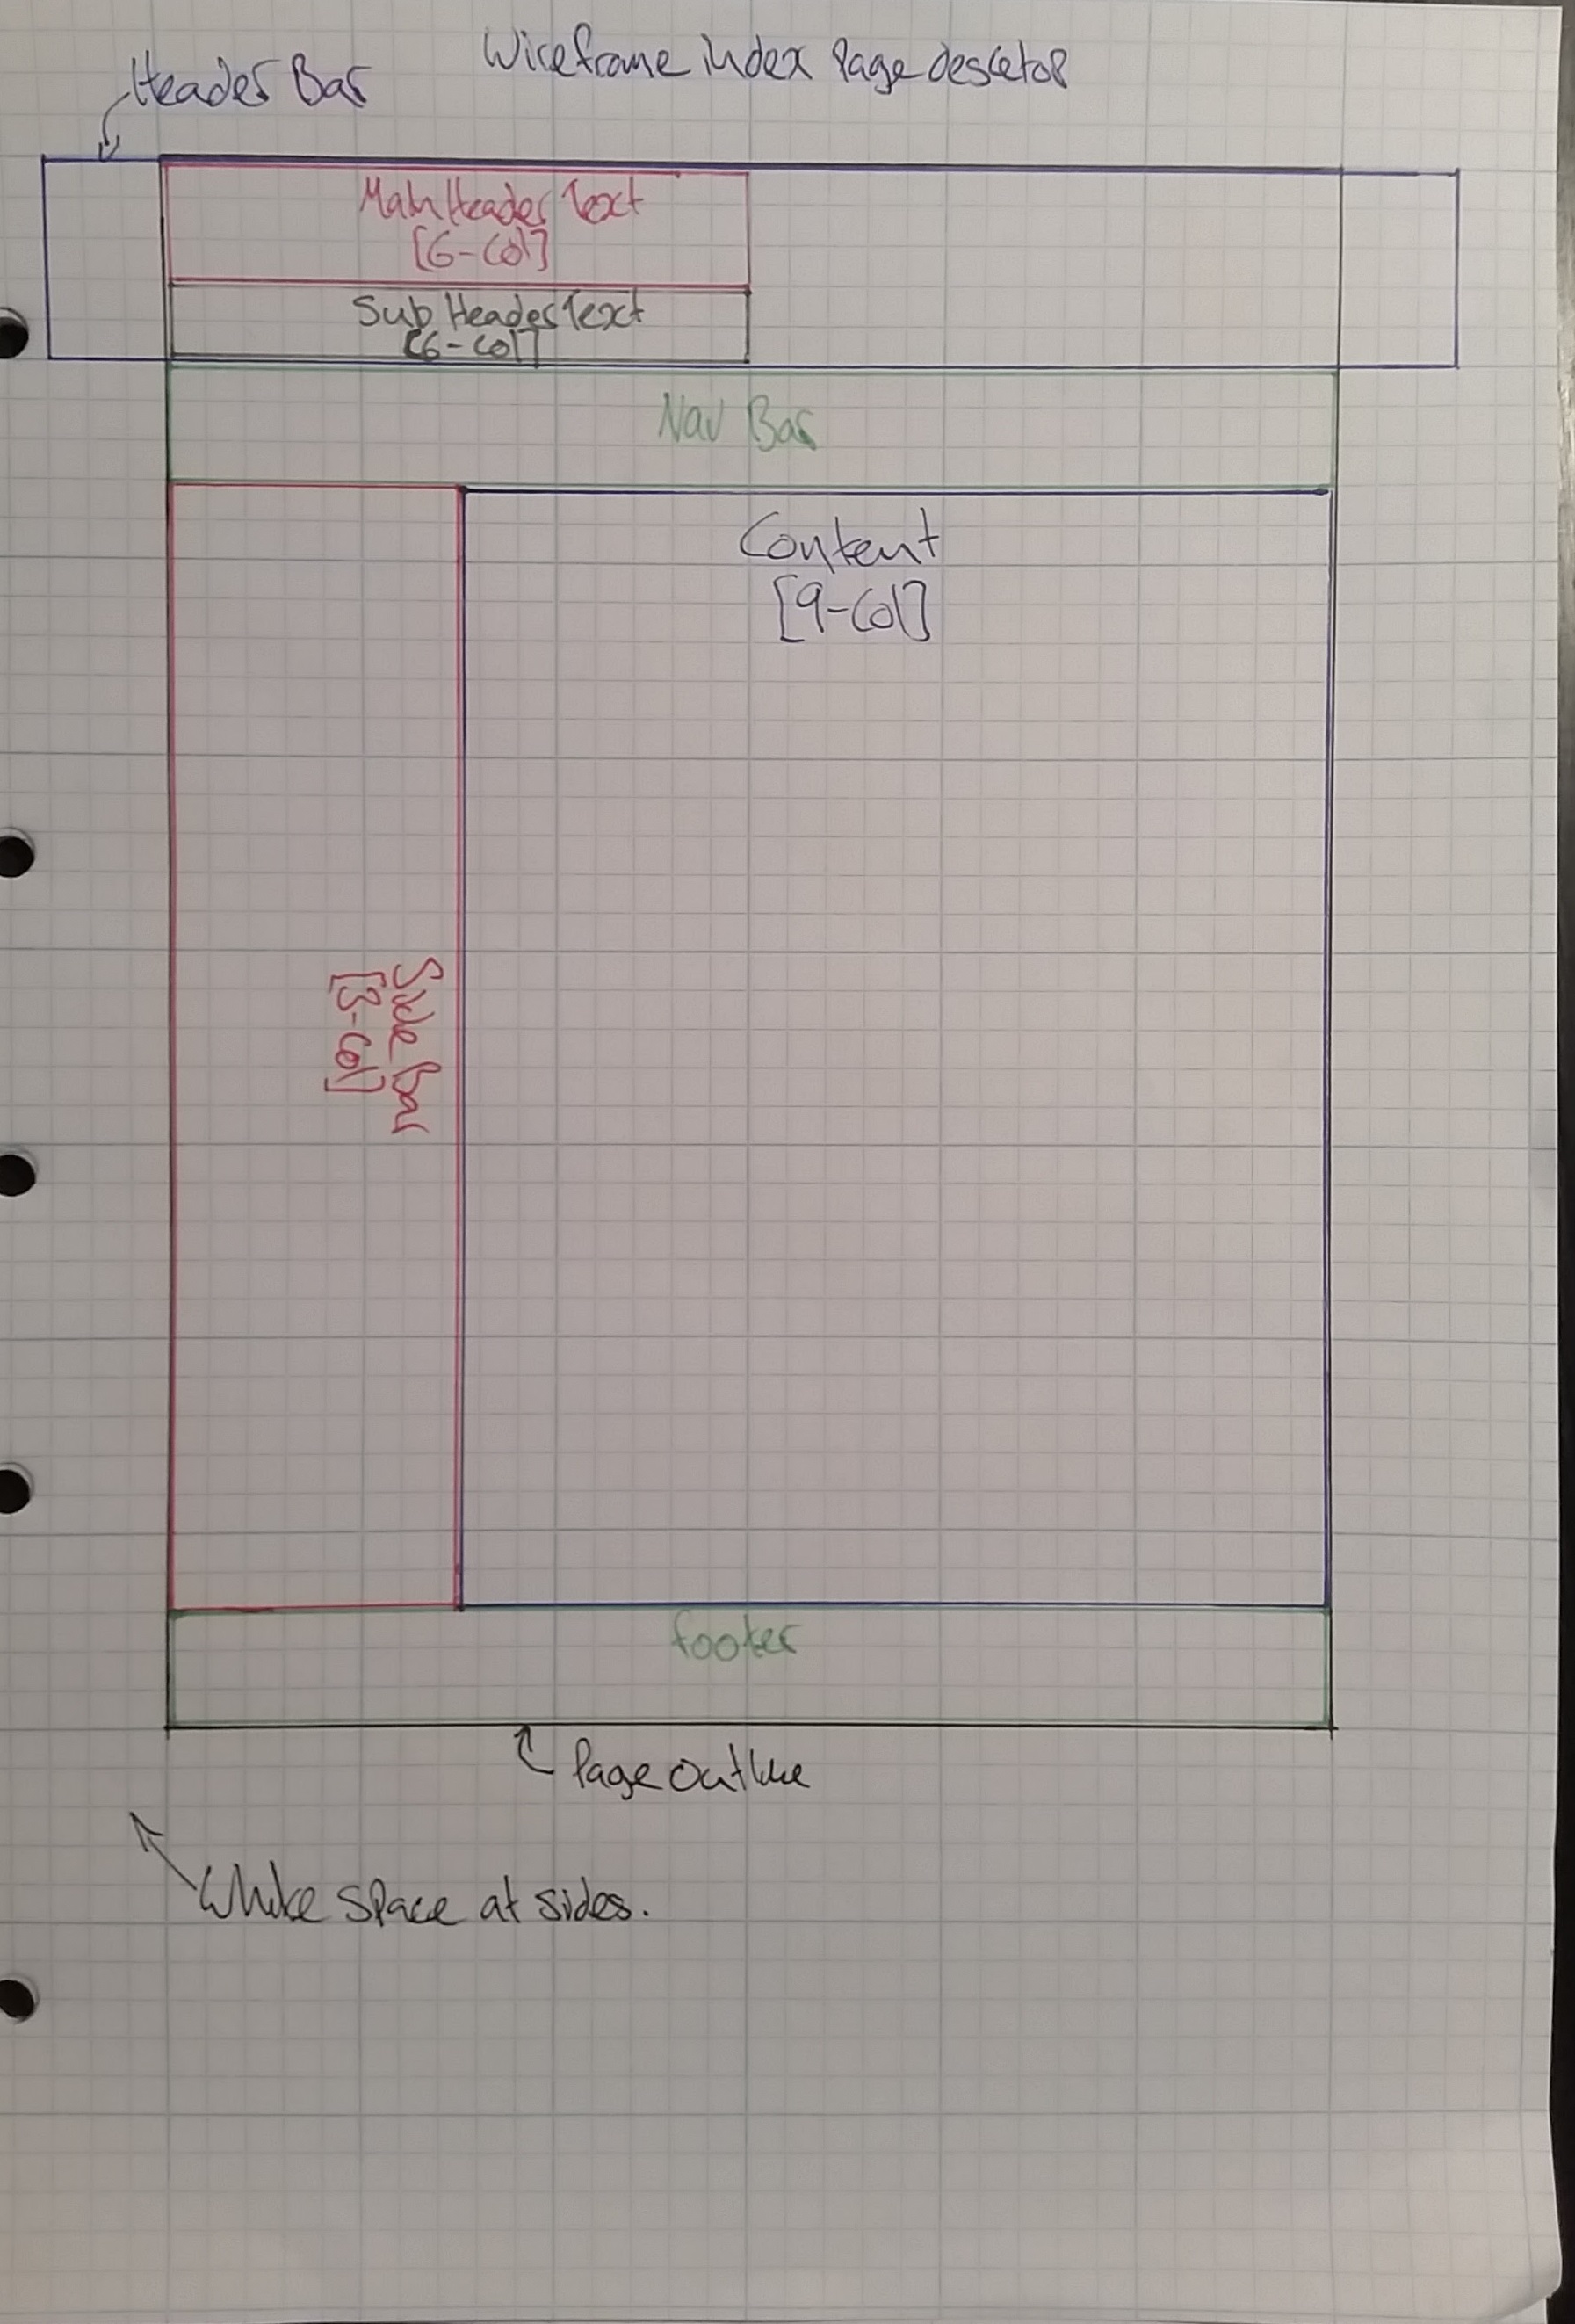 Wireframe index Page desktop
Header Bar
Main Header Text
[6-Col]
Sub Header Text
[6-Col]
Nav Bar
Content
[9-Col]
Side Bar
[3-Col]
footer
Page outline
White space at sides.